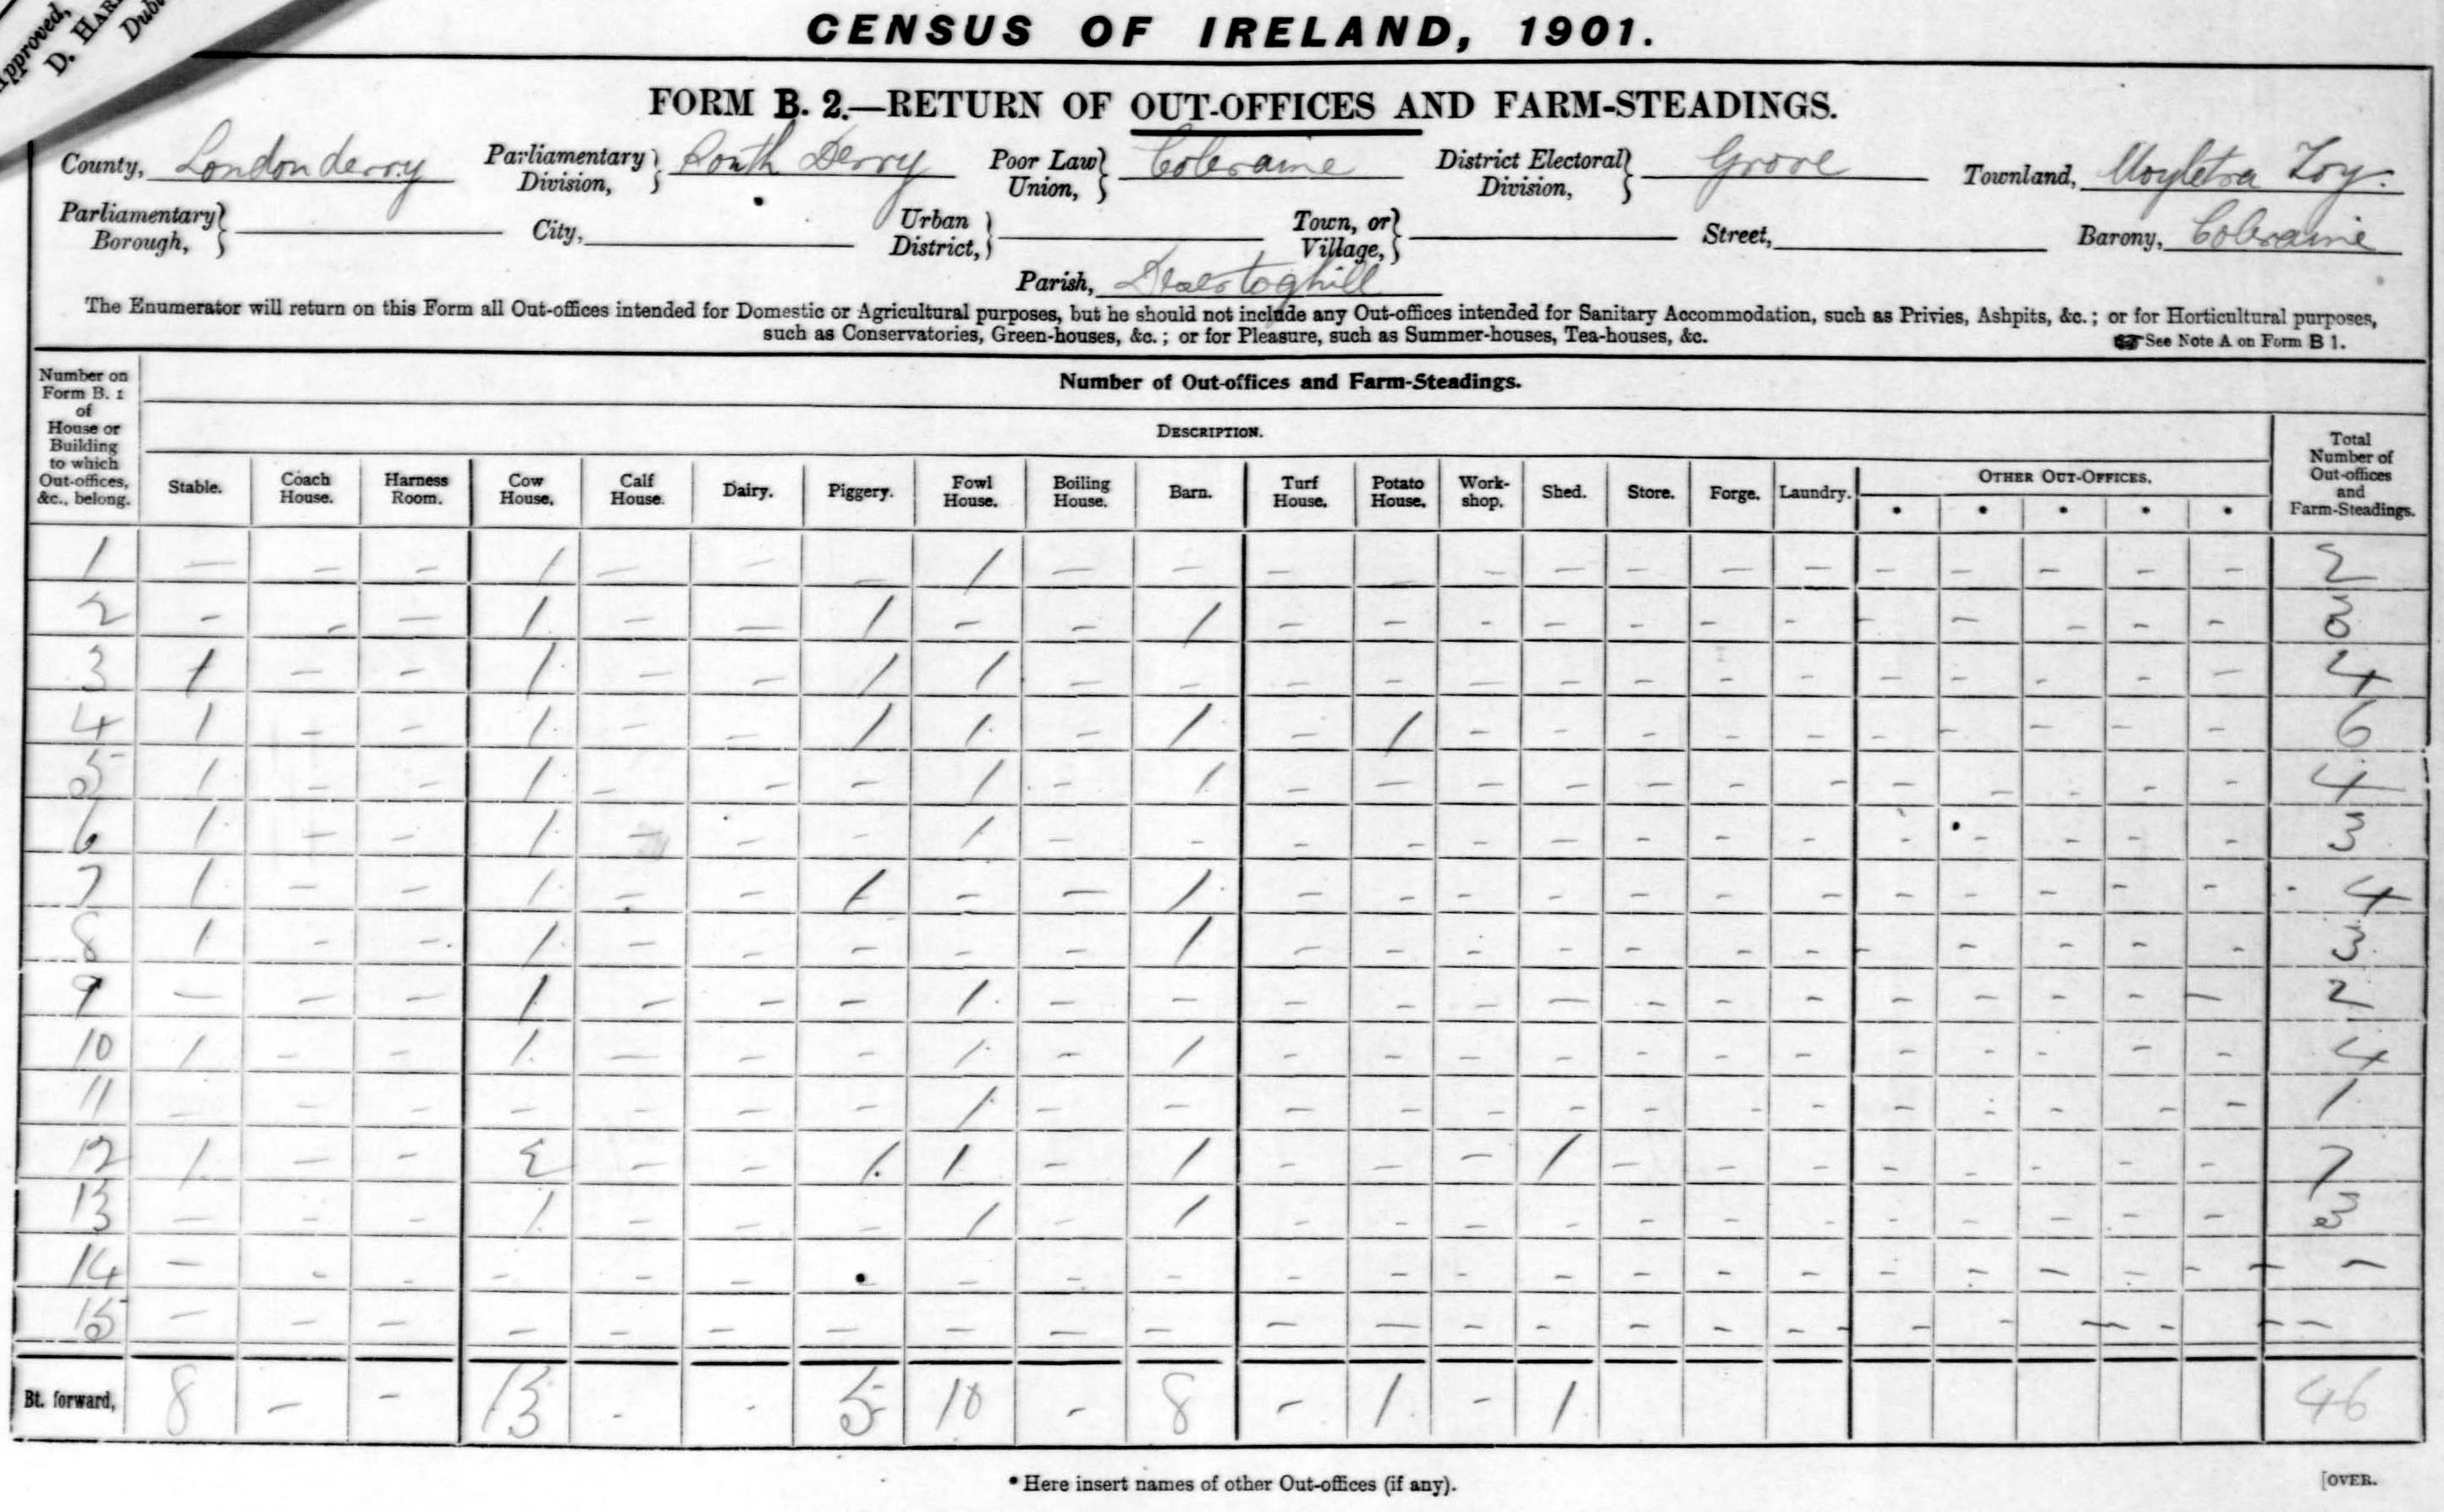 Approved,
D. HAR
Dub
CENSUS OF IRELAND, 1901.
FORM B. 2.—RETURN OF OUT-OFFICES AND FARM-STEADINGS.
County, Londonderry Parliamentary Division, South Derry Poor Law Union, Coleraine District Electoral Division, Grove Townland, Moyletra Toy.
Parliamentary Borough, City, Urban District, Town, or Village, Street, Barony, Coleraine
Parish, Desertoghill
The Enumerator will return on this Form all Out-offices intended for Domestic or Agricultural purposes, but he should not include any Out-offices intended for Sanitary Accommodation, such as Privies, Ashpits, &c.; or for Horticultural purposes,
such as Conservatories, Green-houses, &c.; or for Pleasure, such as Summer-houses, Tea-houses, &c. ☞See Note A on Form B 1.
Number on Form B. 1 of House or Building to which Out-offices, &c., belong.
Number of Out-offices and Farm-Steadings.
DESCRIPTION.
Total Number of Out-offices and Farm-Steadings.
Stable. Coach House. Harness Room. Cow House. Calf House. Dairy. Piggery. Fowl House. Boiling House. Barn. Turf House. Potato House. Work-shop. Shed. Store. Forge. Laundry. OTHER OUT-OFFICES.
* * * * *
1 — — — 1 — — — 1 — — — — — — — — — — — — — — 2
2 — — — 1 — — 1 — — 1 — — — — — — — — — — — — 3
3 1 — — 1 — — 1 1 — — — — — — — — — — — — — — 4
4 1 — — 1 — — 1 1 — 1 — 1 — — — — — — — — — — 6
5 1 — — 1 — — — 1 — 1 — — — — — — — — — — — — 4
6 1 — — 1 — — — 1 — — — — — — — — — — — — — — 3
7 1 — — 1 — — 1 — — 1 — — — — — — — — — — — — 4
8 1 — — 1 — — — — — 1 — — — — — — — — — — — — 3
9 — — — 1 — — — 1 — — — — — — — — — — — — — — 2
10 1 — — 1 — — — 1 — 1 — — — — — — — — — — — — 4
11 — — — — — — — 1 — — — — — — — — — — — — — — 1
12 1 — — 2 — — 1 1 — 1 — — — 1 — — — — — — — — 7
13 — — — 1 — — — 1 — 1 — — — — — — — — — — — — 3
14 — — — — — — • — — — — — — — — — — — — — — — —
15 — — — — — — — — — — — — — — — — — — — — — — —
Bt. forward, 8 — — 13 - - 5 10 - 8 - 1 - 1 46
* Here insert names of other Out-offices (if any).
[OVER.